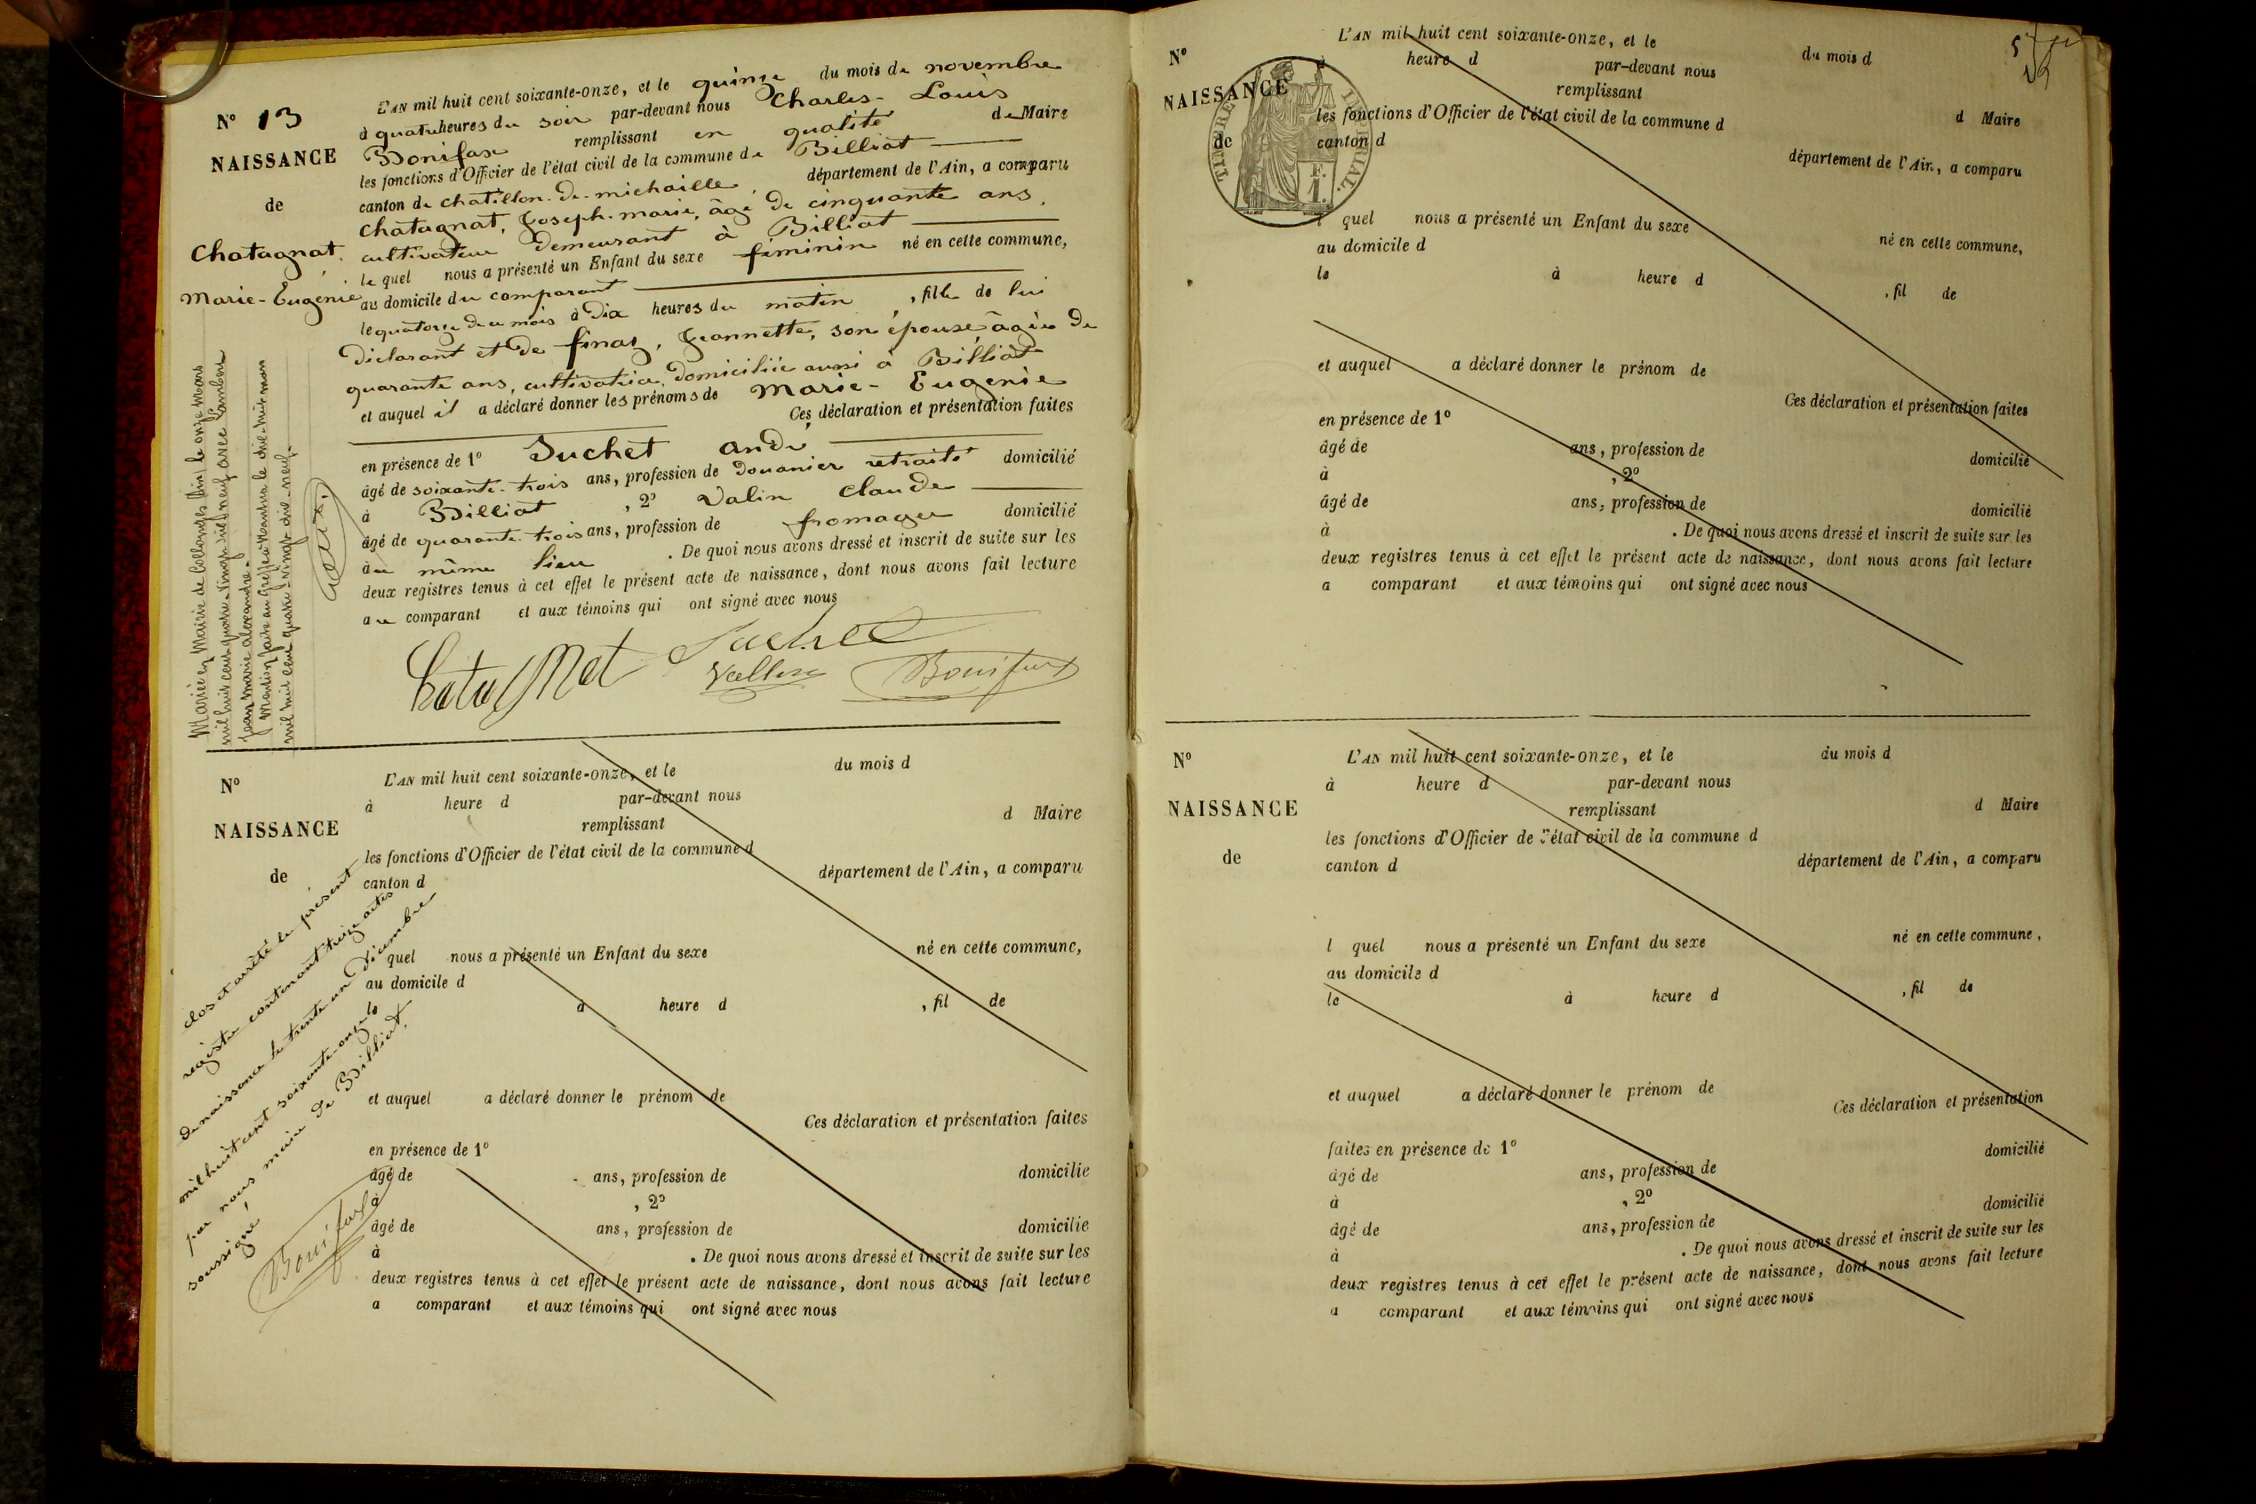 N° 13
NAISSANCE
de
Chatagnat.
Marie-Eugénie
L'AN mil huit cent soixante-onze, et le quinze du mois de novembre
à quatre heures du soir par-devant nous Charles-Louis
Bonifax remplissant en qualité de Maire
les fonctions d'Officier de l'état civil de la commune de Billiat
canton de chatillon-de-michaille, département de l'Ain, a comparu
chatagnat, Joseph-marie, âgé de cinquante ans,
cultivateur demeurant à Billiat
le quel nous a présenté un Enfant du sexe féminin né en cette commune,
au domicile du comparant
le quatorze de ce mois à dix heures du matin, fille de lui
déclarant et de finaz, Jeannette, son épouse âgée de
quarante ans, cultivatrice, domiciliée aussi à Billiat
et auquel il a déclaré donner les prénoms de Marie-Eugénie
Ces déclaration et présentation faites
en présence de 1° Suchet andré
âgé de soixante-trois ans, profession de douanier retraité domicilié
à Billiat, 2° Valin claude
âgé de quarante-trois ans, profession de fromager domicilié
au même lieu. De quoi nous avons dressé et inscrit de suite sur les
deux registres tenus à cet effet le présent acte de naissance, dont nous avons fait lecture
au comparant et aux témoins qui ont signé avec nous
Chatagnat Suchet
Bonifax
Mariée en Mairie de Collonges (Ain) le onze mars
mil huit cent quatre-vingt-dix-neuf avec Lambert
Jean marie alexandre.
Mention faite au greffe à Nantua le dix-huit mars
mil huit cent quatre-vingt-dix-neuf.
N°
NAISSANCE
de
L'AN mil huit cent soixante-onze, et le du mois d
à heure d par-devant nous
remplissant d Maire
les fonctions d'Officier de l'état civil de la commune d
canton d département de l'Ain, a comparu
quel nous a présenté un Enfant du sexe né en cette commune,
au domicile d
le à heure d , fil de
et auquel a déclaré donner le prénom de
Ces déclaration et présentation faites
en présence de 1°
âgé de ans, profession de domicilié
à , 2°
âgé de ans, profession de domicilié
à . De quoi nous avons dressé et inscrit de suite sur les
deux registres tenus à cet effet le présent acte de naissance, dont nous avons fait lecture
a comparant et aux témoins qui ont signé avec nous
clos et arrêté le présent
registre contenant treize actes
de naissance le trente un Décembre
mil huit cent soixante-onze
par nous maire de Billiat
soussigné
Bonifax
N°
NAISSANCE
de
TIMBRE IMPERIAL.
F.
1.
L'AN mil huit cent soixante-onze, et le du mois d
à heure d par-devant nous
remplissant d Maire
les fonctions d'Officier de l'état civil de la commune d
canton d département de l'Ain, a comparu
l quel nous a présenté un Enfant du sexe né en cette commune,
au domicile d
le à heure d , fil de
et auquel a déclaré donner le prénom de
Ces déclaration et présentation faites
en présence de 1°
âgé de ans, profession de domicilié
à , 2°
âgé de ans, profession de domicilié
à . De quoi nous avons dressé et inscrit de suite sur les
deux registres tenus à cet effet le présent acte de naissance, dont nous avons fait lecture
a comparant et aux témoins qui ont signé avec nous
N°
NAISSANCE
de
L'AN mil huit cent soixante-onze, et le du mois d
à heure d par-devant nous
remplissant d Maire
les fonctions d'Officier de l'état civil de la commune d
canton d département de l'Ain, a comparu
l quel nous a présenté un Enfant du sexe né en cette commune,
au domicile d
le à heure d , fil de
et auquel a déclaré donner le prénom de
Ces déclaration et présentation
faites en présence de 1° domicilié
âgé de ans, profession de
à , 2° domicilié
âgé de ans, profession de
à . De quoi nous avons dressé et inscrit de suite sur les
deux registres tenus à cet effet le présent acte de naissance, dont nous avons fait lecture
a comparant et aux témoins qui ont signé avec nous